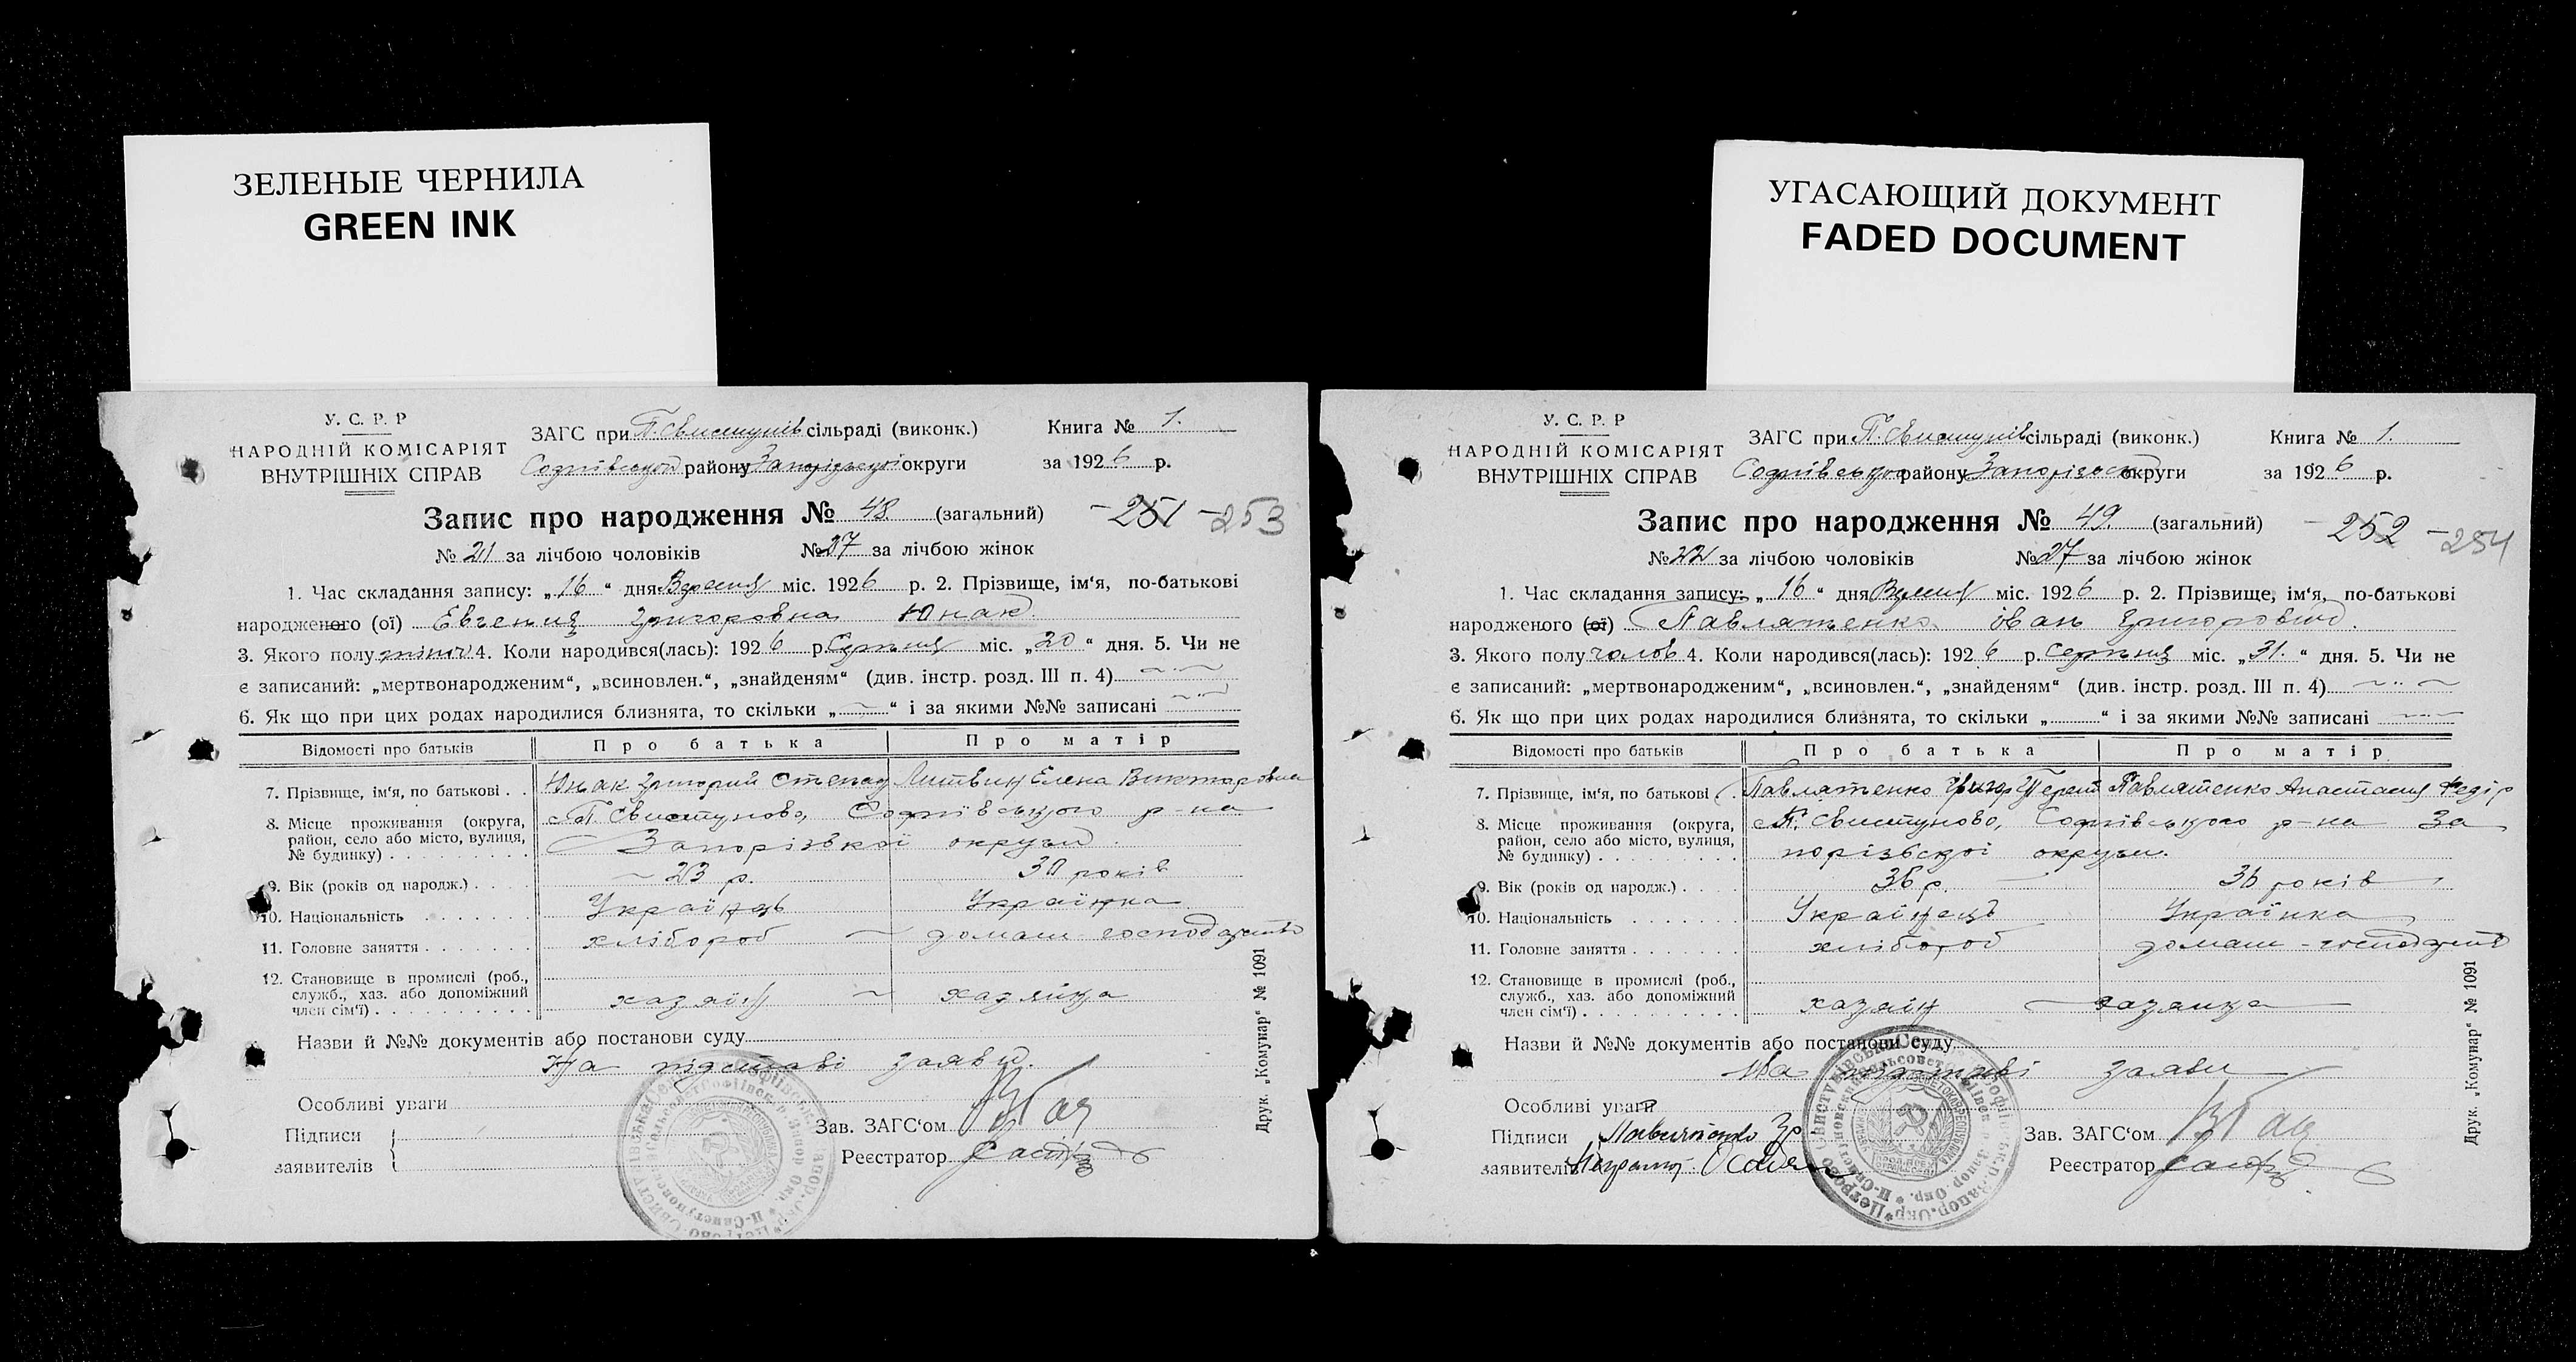 ЗЕЛЕНЫЕ ЧЕРНИЛА
GREEN INK
У. С. Р. Р
НАРОДНІЙ КОМІСАРІЯТ
ВНУТРІШНІХ СПРАВ
ЗАГС при П. Свистунів сільраді (виконк.)
Книга № 1.
району округи
за 1926 р.
Запис про народження № 48 (загальний)
-251 -253
№ 21 за лічбою чоловіків № 27 за лічбою жінок
1. Час складання запису: „16“ дня Вересня міс. 1926 р. 2. Прізвище, ім'я, по-батькові
народженого (ої) Евгения Григоровна Юнак
3. Якого полу жіноч 4. Коли народився(лась): 1926 р. Серпня міс. „20“ дня. 5. Чи не
є записаний: „мертвонародженим“, „всиновлен.“, „знайденям“ (див. інстр. розд. III п. 4)
6. Як що при цих родах народилися близнята, то скільки „ “ і за якими №№ записані
Відомості про батьків Про батька Про матір
7. Прізвище, ім'я, по батькові . . Юнак Григорий Степад Литвин Елена Викторовна
8. Місце проживання (округа, район, село або місто, вулиця, № будинку) П Свистуново, Софіївського р-на
Запорізької округи
9. Вік (років од народж.) 23 р. 30 років
10. Національність Українка
11. Головне заняття хлібороб домаш господарство
12. Становище в промислі (роб., служб., хаз. або допоміжний член сім'ї) хазяїн хазяйка
Назви й №№ документів або постанови суду
На підставі заяви.
Особливі уваги
Підписи
заявителів
Зав. ЗАГС'ом
Реєстратор
Друк. „Комунар“ № 1091
УГАСАЮЩИЙ ДОКУМЕНТ
FADED DOCUMENT
У. С. Р. Р
НАРОДНІЙ КОМІСАРІЯТ
ВНУТРІШНІХ СПРАВ
ЗАГС при П. Свистунів сільраді (виконк.)
Книга № 1.
району округи
за 1926 р.
Запис про народження № 49. (загальний)
-252 -254
№ 22 за лічбою чоловіків № 27 за лічбою жінок
1. Час складання запису: „16“ дня Вересня міс. 1926 р. 2. Прізвище, ім'я, по-батькові
народженого (ої) Павлятенко Іван Григорович.
3. Якого полу чолов 4. Коли народився(лась): 1926 р. Серпня міс. „31.“ дня. 5. Чи не
є записаний: „мертвонародженим“, „всиновлен.“, „знайденям“ (див. інстр. розд. III п. 4)
6. Як що при цих родах народилися близнята, то скільки „ “ і за якими №№ записані
Відомості про батьків Про батька Про матір
7. Прізвище, ім'я, по батькові . Павлятенко Григор Павлятенко Анастасия Федір
8. Місце проживання (округа, район, село або місто, вулиця, № будинку) П. Свистуново, Софіївського р-на За
порізської округи.
9. Вік (років од народж.) 36 р. 36 років
10. Національність Українець Українка
11. Головне заняття хлібороб домаш-господарств
12. Становище в промислі (роб., служб., хаз. або допоміжний член сім'ї) хазяїн хазяйка
Назви й №№ документів або постанови суду
На підставі заяви
Особливі уваги
Підписи
заявителів
Зав. ЗАГС'ом
Реєстратор
Друк. „Комунар“ № 1091